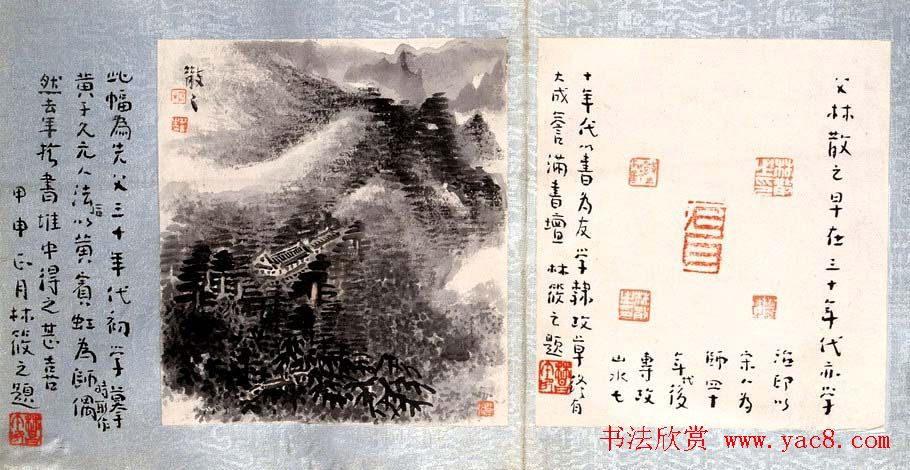 父林散之早在三十年代亦学
治印以
宋人为
師四十
年代後
專攻
山水七
十年代以書為友学隸攻草終有
大成誉滿書壇 林筱之題
散之
此幅為先父三十年代初学摹于
黄子久元人法后以黄賓虹為師時所作偶
然去年於書堆中得之甚喜
甲申正月林筱之題
书法欣赏 www.yac8.com